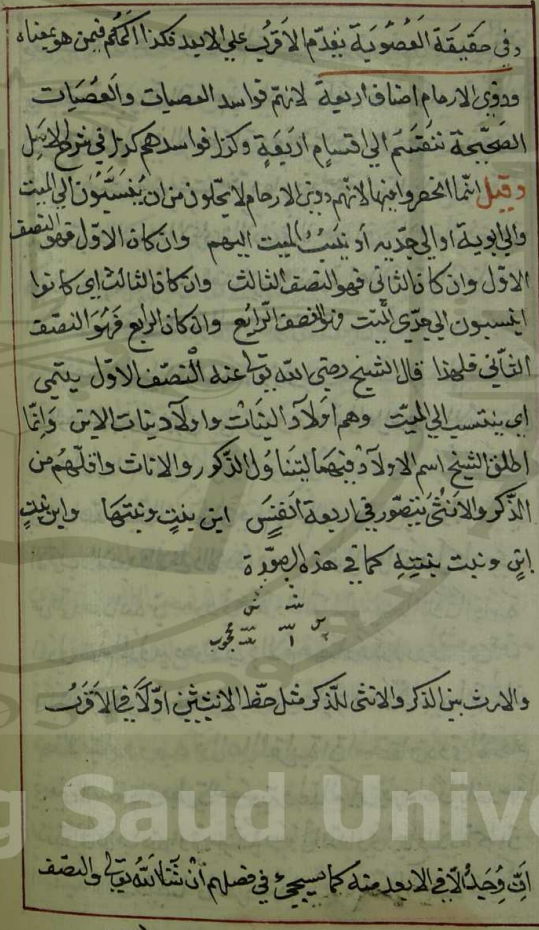 وفي حقيقة العصوبة يقدم الاقرب علي الابعد فكذا الحكم فيمن هو بمعناه
وذوي الارحام اصناف اربعة لانهم فواسد العصبات والعصبات
الصحيحة تنقسم الي اقسام اربعة وكذا فواسدهم كذا في
وقيل انما انحصروا فيها لانهم ذوي الارحام لا يخلون من ان ينسبون الي الميت
والي ابويه او الي جديه او ينسب الميت اليهم وان كان الاول فهو النصف
الاول وان كان الثاني فهو النصف الثالث وان كان الثالث اي كانوا
ينسبون الي جدي الميت فهو النصف الرابع وان كان الرابع فهو النصف
الثاني فلهذا قال الشيخ رضي الله تعالى عنه النصف الاول ينتمي
اي ينتسب الي الميت وهم اولاد البنات واولاد بنات الابن وانما
اطلق الشيخ اسم الاولاد فيهما ليتناول الذكور والاناث واقلهم من
الذكر والانثى يتصور في اربعة انفس ابن بنت وبنتها وابن بنت
ابن وبنت بنته كما في هذه الصورة
محجوب
والارث بين الذكر والانثى للذكر مثل حظ الانثيين اولا في الاقرب
King Saud University
ان وجد والا في الابعد منه كما سيجيء في فصلهم ان شاء الله تعالى والنصف